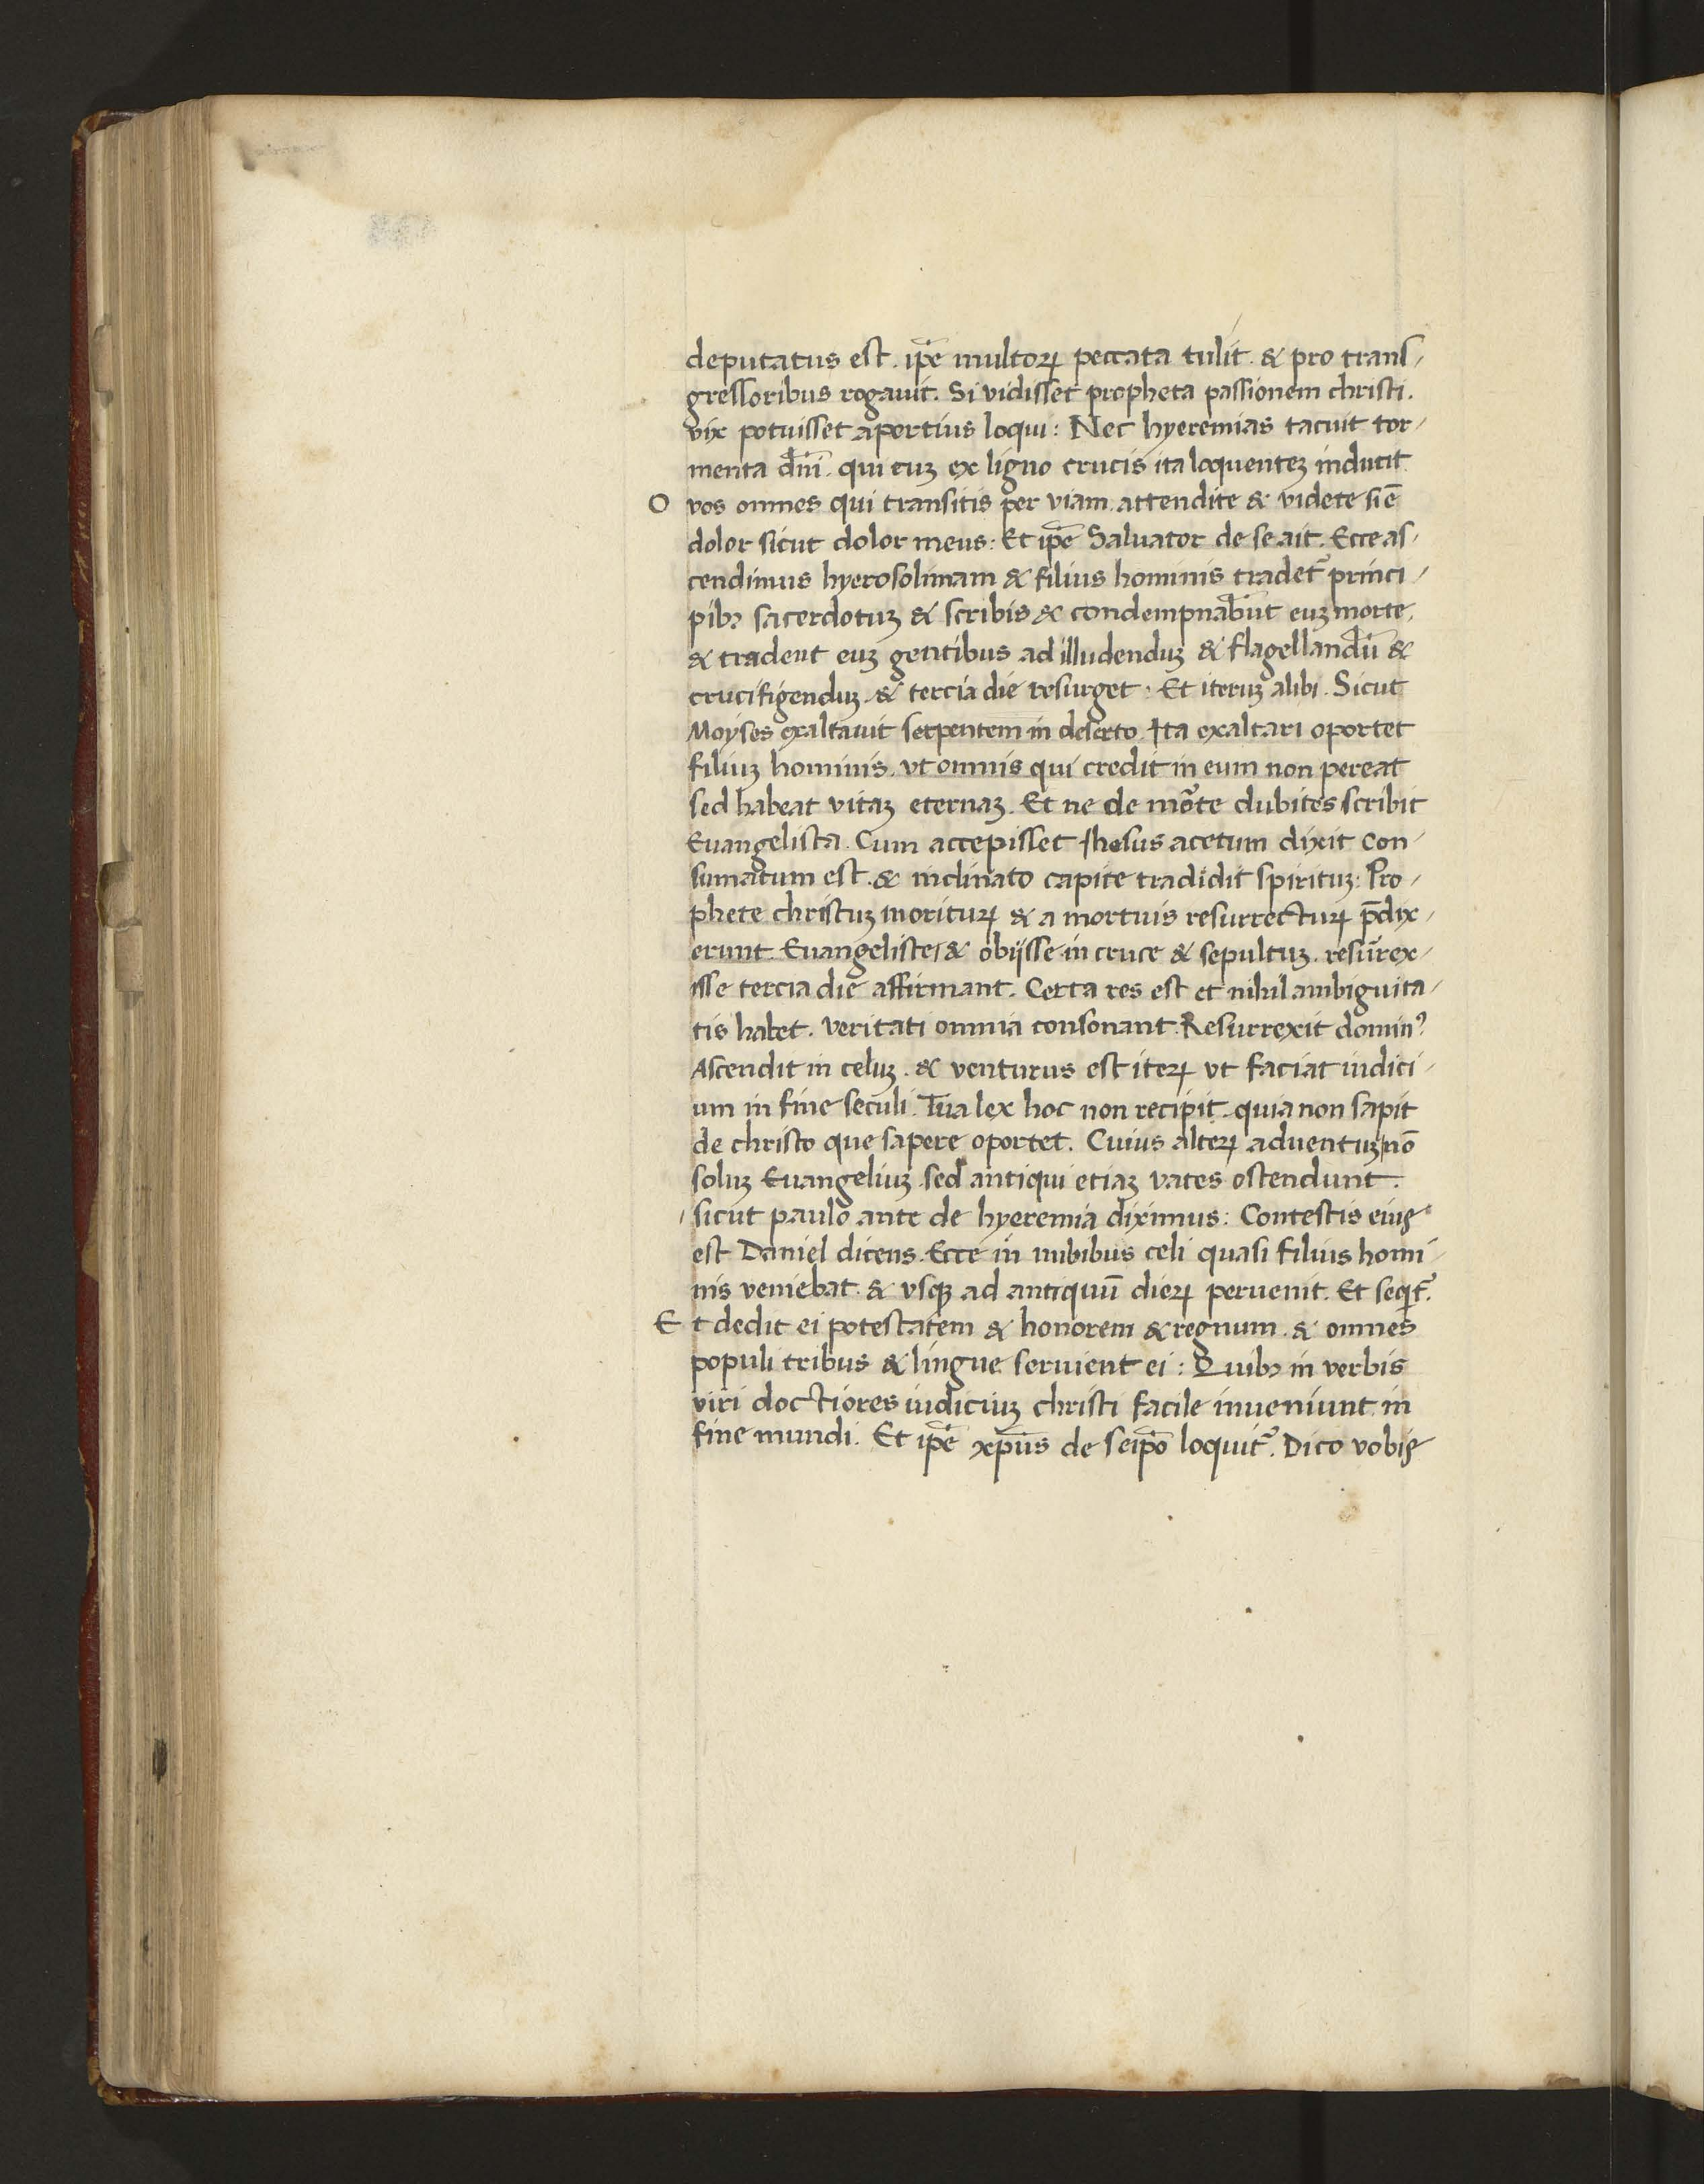 deputatus est. ip̄e multoꝝ peccata tulit. & pro trans-
gressoribus rogauit. Si vidisset propheta passionem christi.
vix potuisset apertius loqui: Nec hyeremias tacuit tor-
menta dn̄i. qui euꝫ ex ligno crucis ita loquenteꝫ inducit
O vos omnes qui transitis per viam. attendite & videte si ē
dolor sicut dolor meus: Et ip̄e Saluator de se ait. Ecce as-
cendimus hyerosolimam & filius hominis tradet᷑ princi-
pibꝫ sacerdotuꝫ & scribis & condempnab̄unt euꝫ morte.
& tradent euꝫ gentibus ad illudenduꝫ & flagellandū &
crucifigenduꝫ. & tercia die resurget. Et iteruꝫ alibi. Sicut
Moyses exaltauit serpentem in deserto. Ita exaltari oportet
filiuꝫ hominis. vt omnis qui credit in eum non pereat
sed habeat vitaꝫ eternaꝫ. Et ne de mo᷑te dubites scribit
Euangelista. Cum accepisset Ihesus acetum dixit Con-
sumatum est. & inclinato capite tradidit spirituꝫ: Pro-
phete christuꝫ morituꝝ & a mortuis resurrectuꝝ p̄dix-
erunt. Euangeliste & obijsse in cruce & sepultuꝫ. resur̄ex-
isse tercia die affirmant. Certa res est et nihil ambiguita-
tis habet. veritati omnia consonant. Resurrexit dominꝰ
Ascendit in celuꝫ. & venturus est iteꝝ vt faciat iudici-
um in fine seculi. Tua lex hoc non recipit. quia non sapit
de christo que sapere oportet. Cuius alteꝝ aduentuꝫ nō
soluꝫ Euangeliuꝫ sed antiqui etiaꝫ vates ostendunt.
sicut paulo ante de hyeremia diximus: Contestis eius
est Daniel dicens. Ecce in nubibus celi quasi filius homi-
nis veniebat. & vsqꝫ ad antiquū dieꝝ peruenit. Et seqit᷑.
Et dedit ei potestatem & honorem & regnum. & omnes
populi tribus & lingue seruient ei: Quibꝫ in verbis
viri doctiores iudiciuꝫ christi facile inueniunt in
fine mundi. Et ip̄e xp̄us de seip̄o loquit᷑. Dico vobis